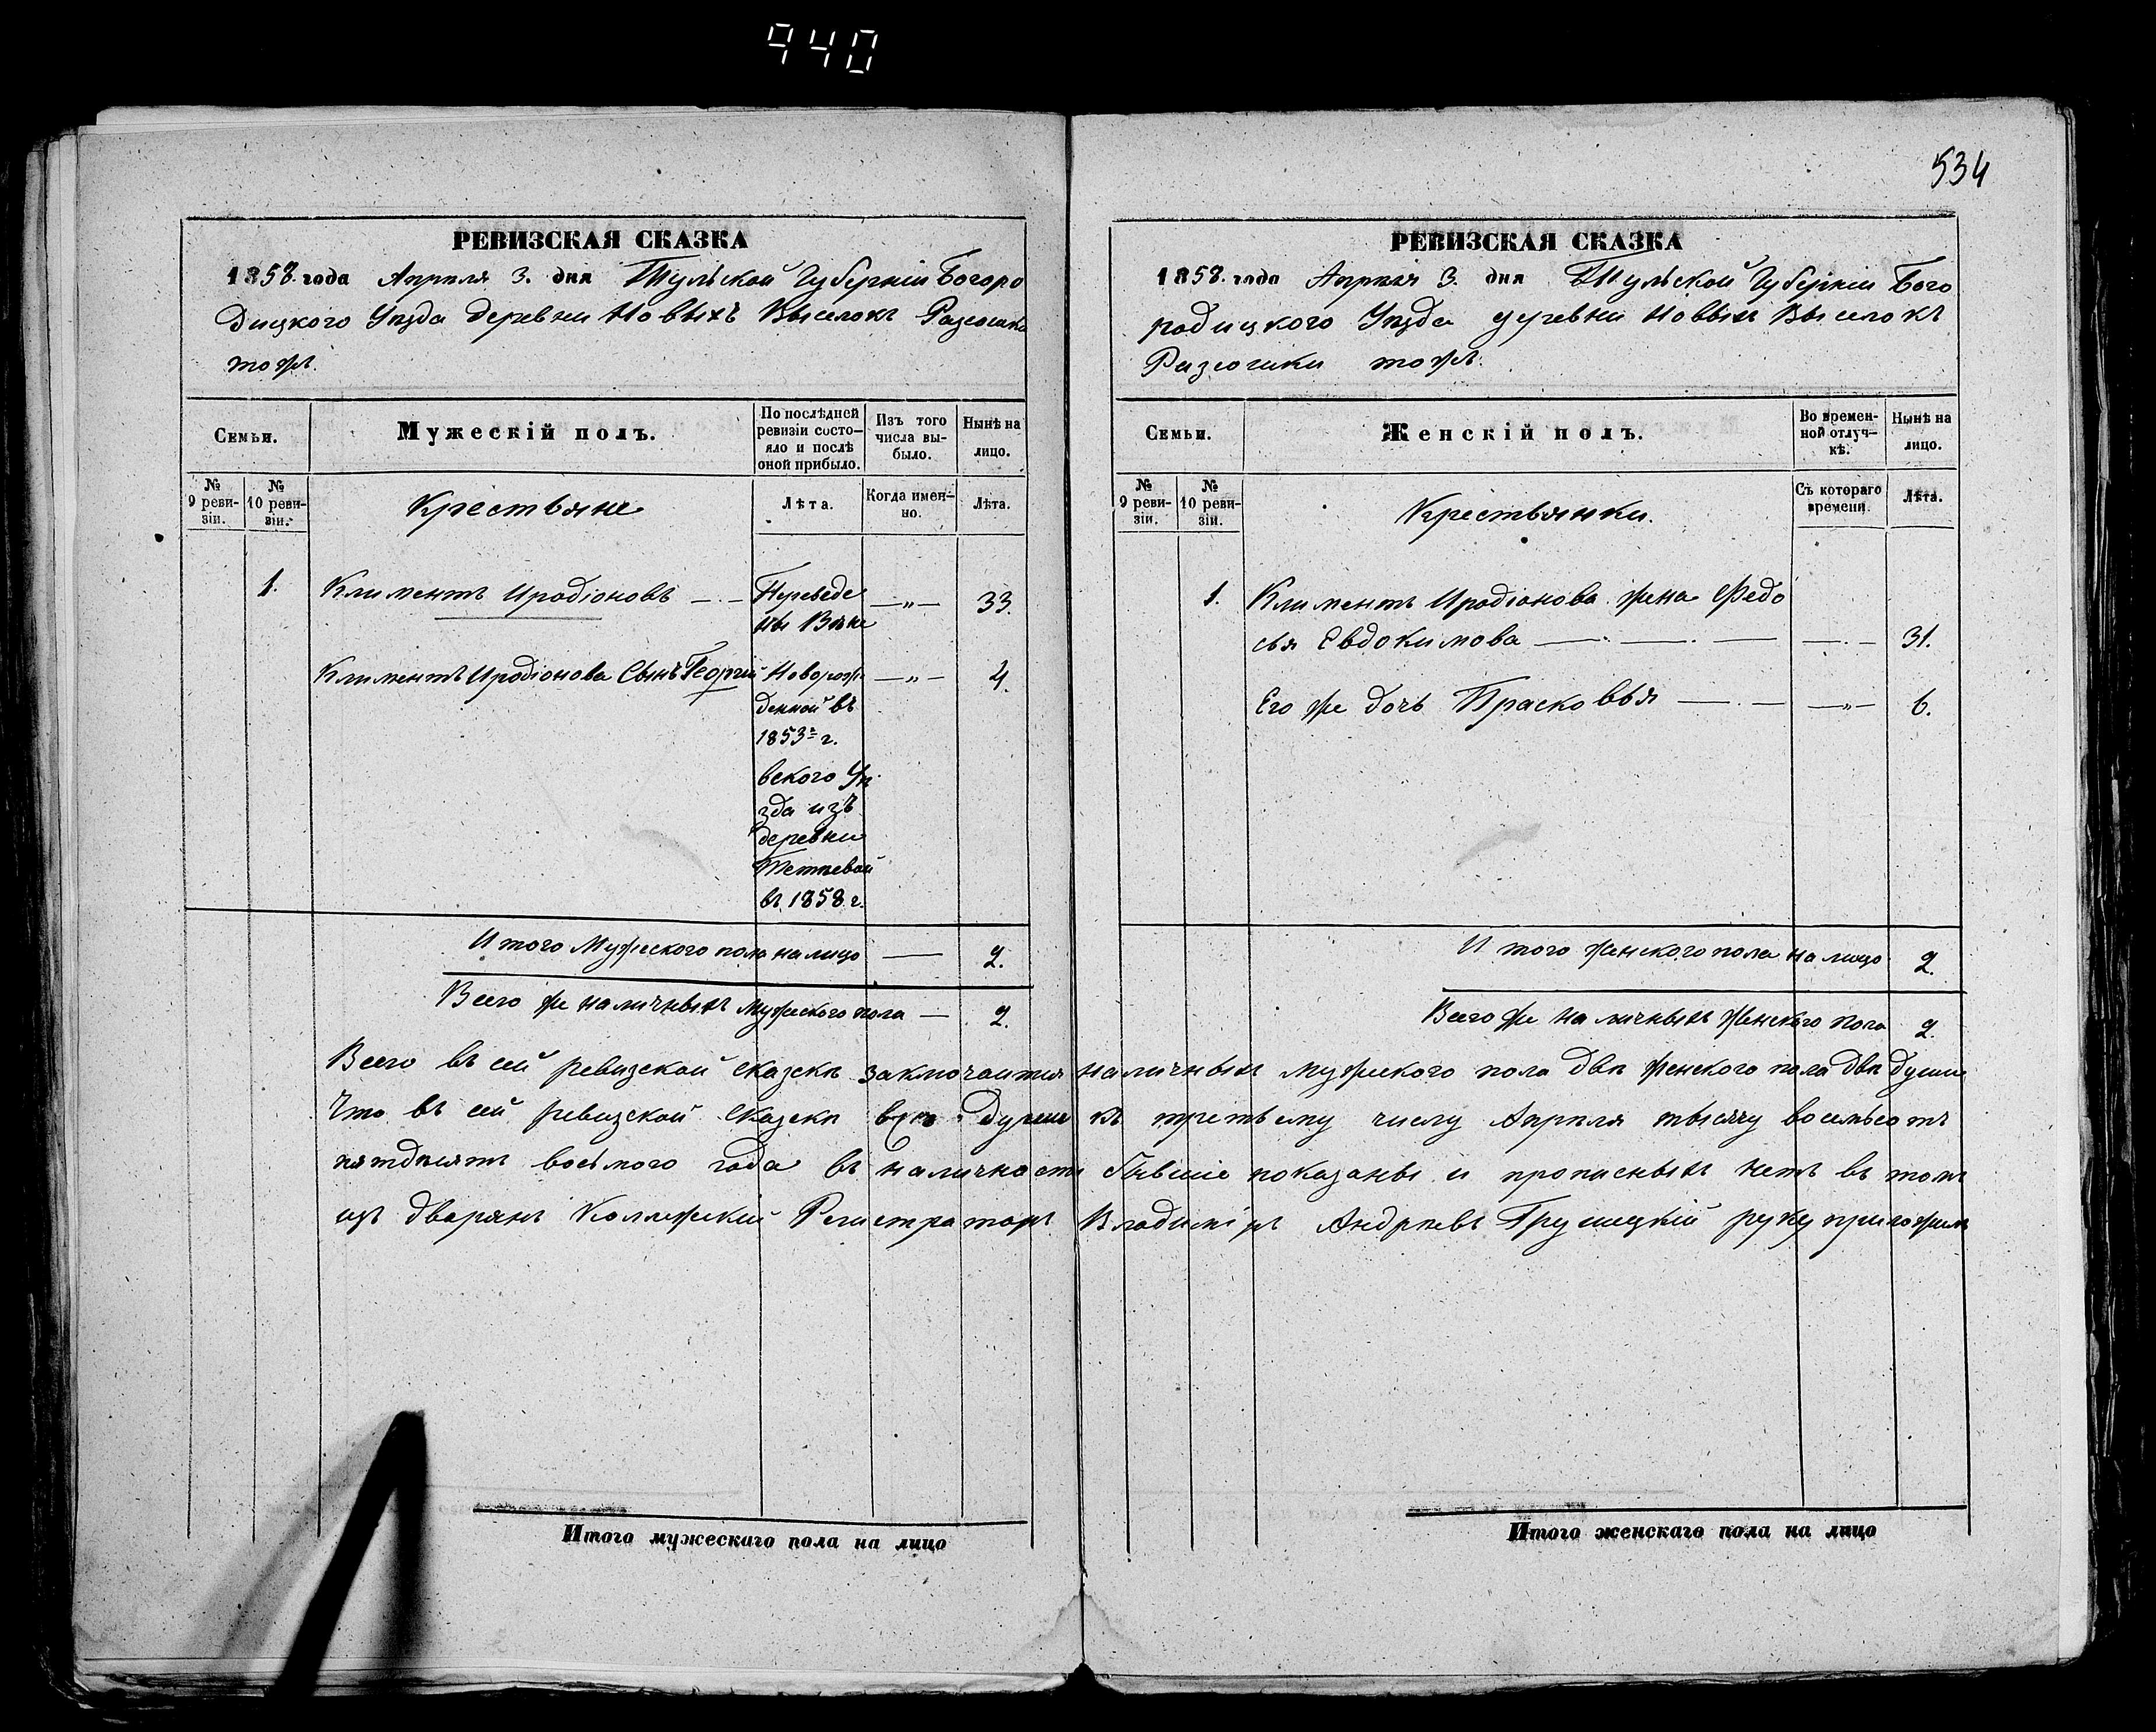 940
534
РЕВИЗСКАЯ СКАЗКА
1858. года Апрѣля 3. дня Тульской Губерніи Богоро
дицкого Уѣзда деревни Новыхъ Выселокъ
тожъ.
Семьи.
Мужескій полъ.
По послѣдней
ревизіи состо-
яло и послѣ
оной прибыло.
Изъ того
числа вы-
было.
Нынѣ на
лицо.
№
9 реви-
зіи.
№
10 реви-
зіи.
Крестьяне
Лѣта.
Когда имен-
но.
Лѣта.
1. Климентъ Иродіоновъ — Переведе — „ — 33.
ны
Климентъ Иродіонова Сынъ Георгій Новорож — „ — 4.
денной въ
1853 г.
вского Уѣ
зда изъ
деревни
въ 1858 г.
Итого Мужеского пола на лицо — 2.
Всего же наличныхъ мужеского пола — 2.
РЕВИЗСКАЯ СКАЗКА
1858. года Апрѣля 3. дня Тульской Губерніи Бого
родицкого Уѣзда деревни Новыхъ Выселокъ
тожъ.
Семьи.
Женскій полъ.
Во времен-
ной отлуч-
кѣ.
Нынѣ на
лицо.
№
9 реви-
зіи.
№
10 реви-
зіи.
Крестьянки.
Съ котораго
времени.
Лѣта.
1. Климентъ Иродіонова жена Федо
сья Евдокимова — — — — 31.
Его же дочь Прасковья — — „ — 6.
Итого женского пола на лицо 2.
Всего же наличныхъ женского пола 2.
Всего въ сей ревизской сказкѣ заключаитца наличныхъ мужеского пола двѣ женского пола двѣ души
Что въ сей ревизской сказкѣ всѣ души къ третьему числу Апрѣля тысячу восемьсотъ
пятдѣсятъ восьмого года въ наличности бывшіе показаны и прописныхъ нетъ въ томъ
изъ дворянъ Коллежскій Регистраторъ Владиміръ Андрѣевъ руку приложилъ
Итого мужескаго пола на лицо
Итого женскаго пола на лицо